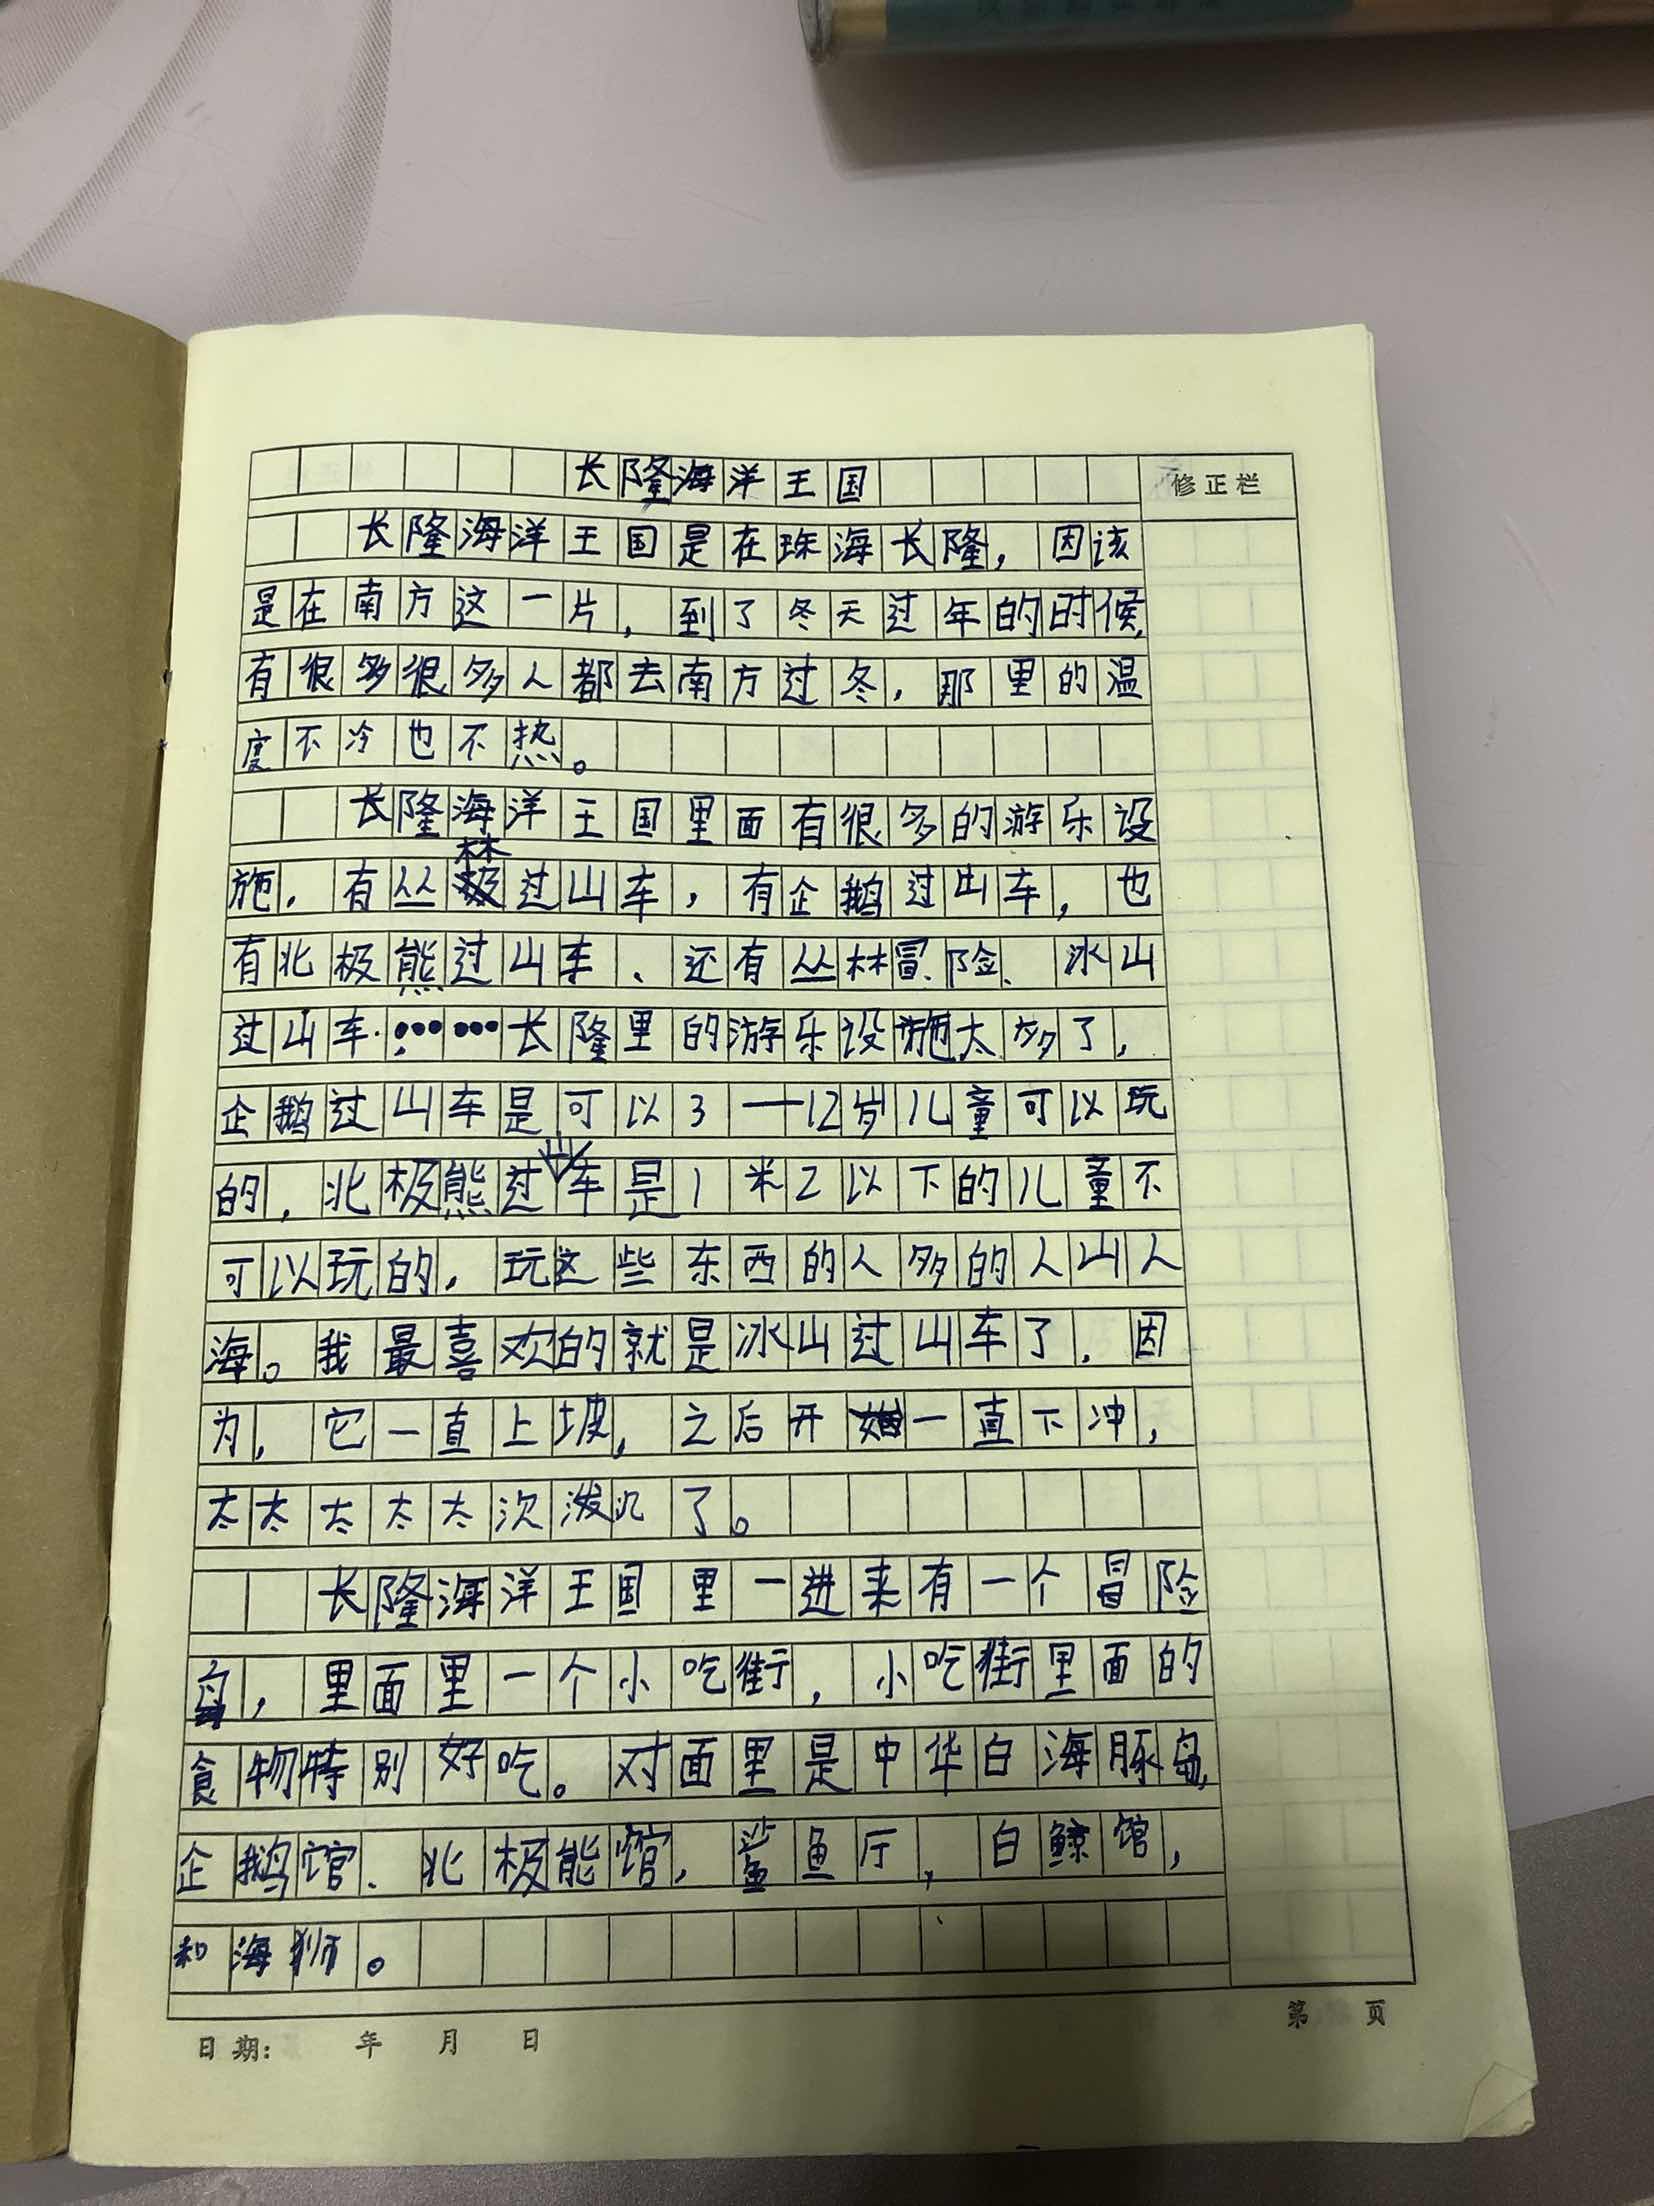 长隆海洋王国
修正栏
长隆海洋王国是在珠海长隆，因该
是在南方这一片，到了冬天过年的时候，
有很多很多人都去南方过冬，那里的温
度不冷也不热。
长隆海洋王国里面有很多的游乐设
施，有丛林过山车，有企鹅过山车，也
有北极熊过山车、还有丛林冒险、冰山
过山车……长隆里的游乐设施太多了，
企鹅过山车是可以3—12岁儿童可以玩
的，北极熊过山车是1米2以下的儿童不
可以玩的，玩这些东西的人多的人山人
海。我最喜欢的就是冰山过山车了，因
为，它一直上坡，之后开始一直下冲，
太太太太太次泼了。
长隆海洋王国里一进来有一个冒险
岛，里面里一个小吃街，小吃街里面的
食物特别好吃。对面里是中华白海豚岛，
企鹅馆、北极能馆，鲨鱼厅，白鲸馆，
和海狮。
日期： 年 月 日
第 页